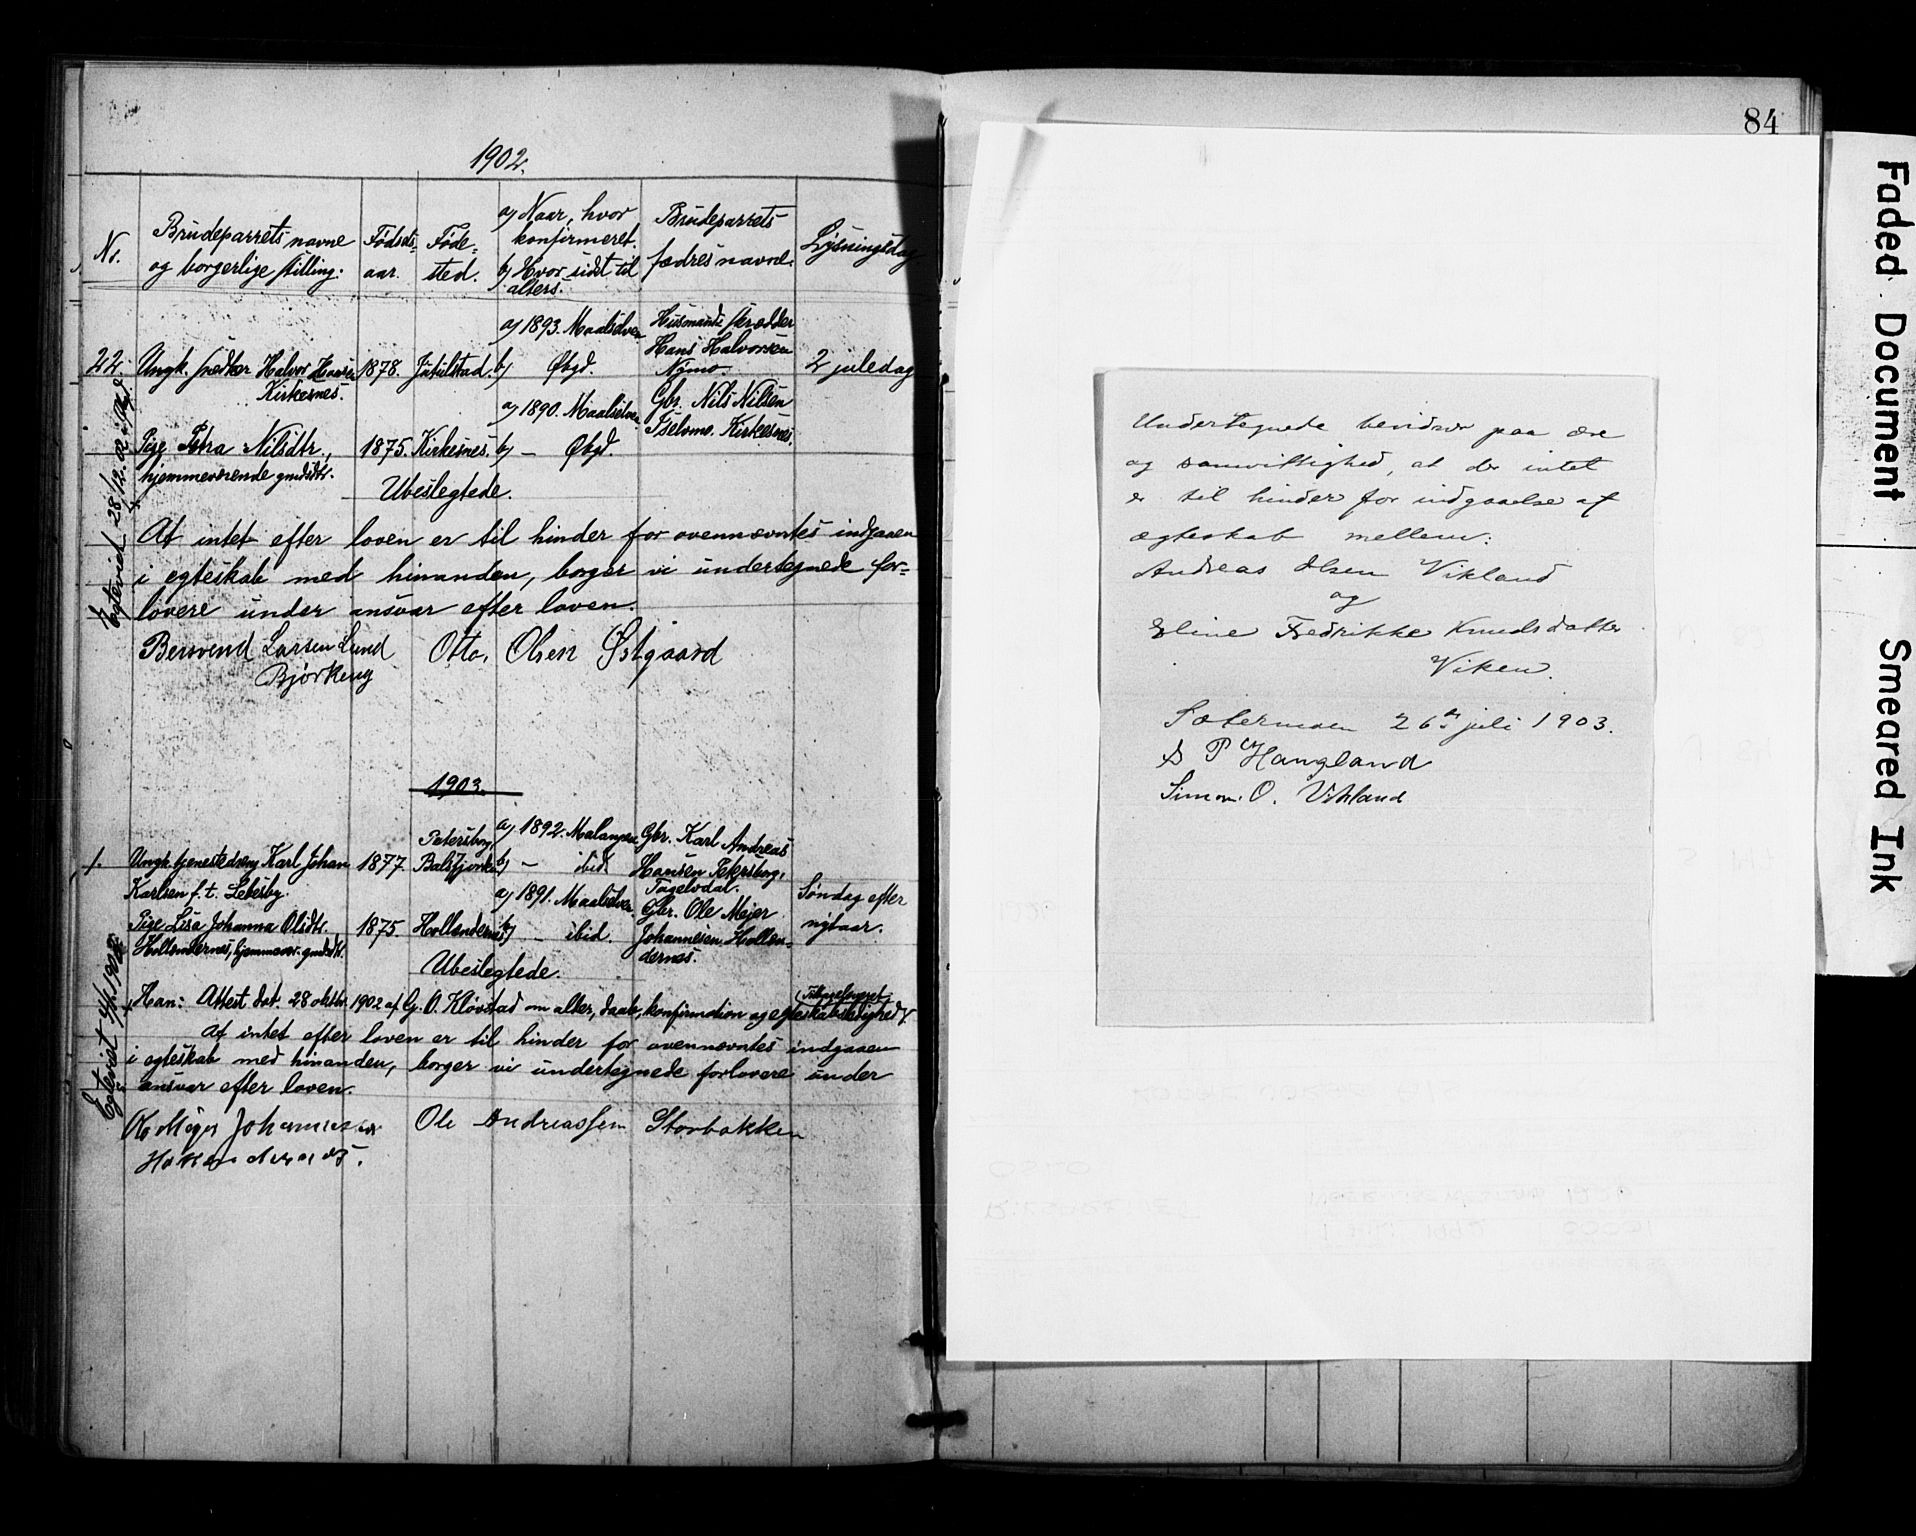 1902.
No.
Brudeparrets navne
og borgerlige stilling.
Fødsels-
aar.
Føde-
sted.
a) Naar, hvor
konfirmeret.
b) Hvor sidst til
alters.
Brudeparrets
fædres navne.
Lysningsdag
22.
Ungk. Halvor Hansen
Kirkesnes.
1878.
a) 1893. Maalselven
b) Øbgd.
Husmands skrædder
Hans Halvorsen
Nymo.
2 juledag
Pige Petra Nilsdtr.,
hjemmeværende gmdsdtr.
1875. Kirkesnes.
a) 1890. Maalselven
b) — Øbgd.
Gbr. Nils Nilsen
Kirkesnes.
Ubeslegtede.
Egteviet 28/12. 02 i Øbgd.
At intet efter loven er til hinder for ovennævntes indgaaen
i egteskab med hinanden, borger vi undertegnede for-
lovere under ansvar efter loven.
Bersvend Larsen Lund
Bjørkeng
Otto. Olsen Østgaard
1903
1.
Ungk. tjenestedreng Karl Johan
Karlsen f. t. Lekesby.
1877.
Petersborg,
Balsfjorden
a) 1892. Malangen
b) — ibid.
Gbr. Karl Andreas
Hansen Petersborg,
Tagelvdal.
Søndag efter
nytaar.
Pige Lisa Johanna Olsdtr.
Hollendernes, hjemmevær. gmdsdtr.
1875. Hollendernes
a) 1891. Maalselven
b) — ibid.
Gbr. Ole Mejer
Johannesen Hollen-
dernes.
Ubeslegtede.
Egteviet
Han: Attest dat. 28 oktbr. 1902 af G. O. Kløvstad om alter, daab, konfirmation og egteskabsledighed
At intet efter loven er til hinder for ovennævntes indgaaen
i egteskab med hinanden, borger vi undertegnede forlovere under
ansvar efter loven.
Johannesen
Ole Andreassen Storbakken
84
Undertegnede bevidner paa ære
og samvittighed, at der intet
er til hinder for indgaaelse af
ægteskab mellem:
Andreas Olsen Vikland
og
Eline Fredrikke Knudsdatter
Viken.
Sætermoen 26de juli 1903.
P Haugland
Simon. O. Vikland
Faded Document
Smeared Ink